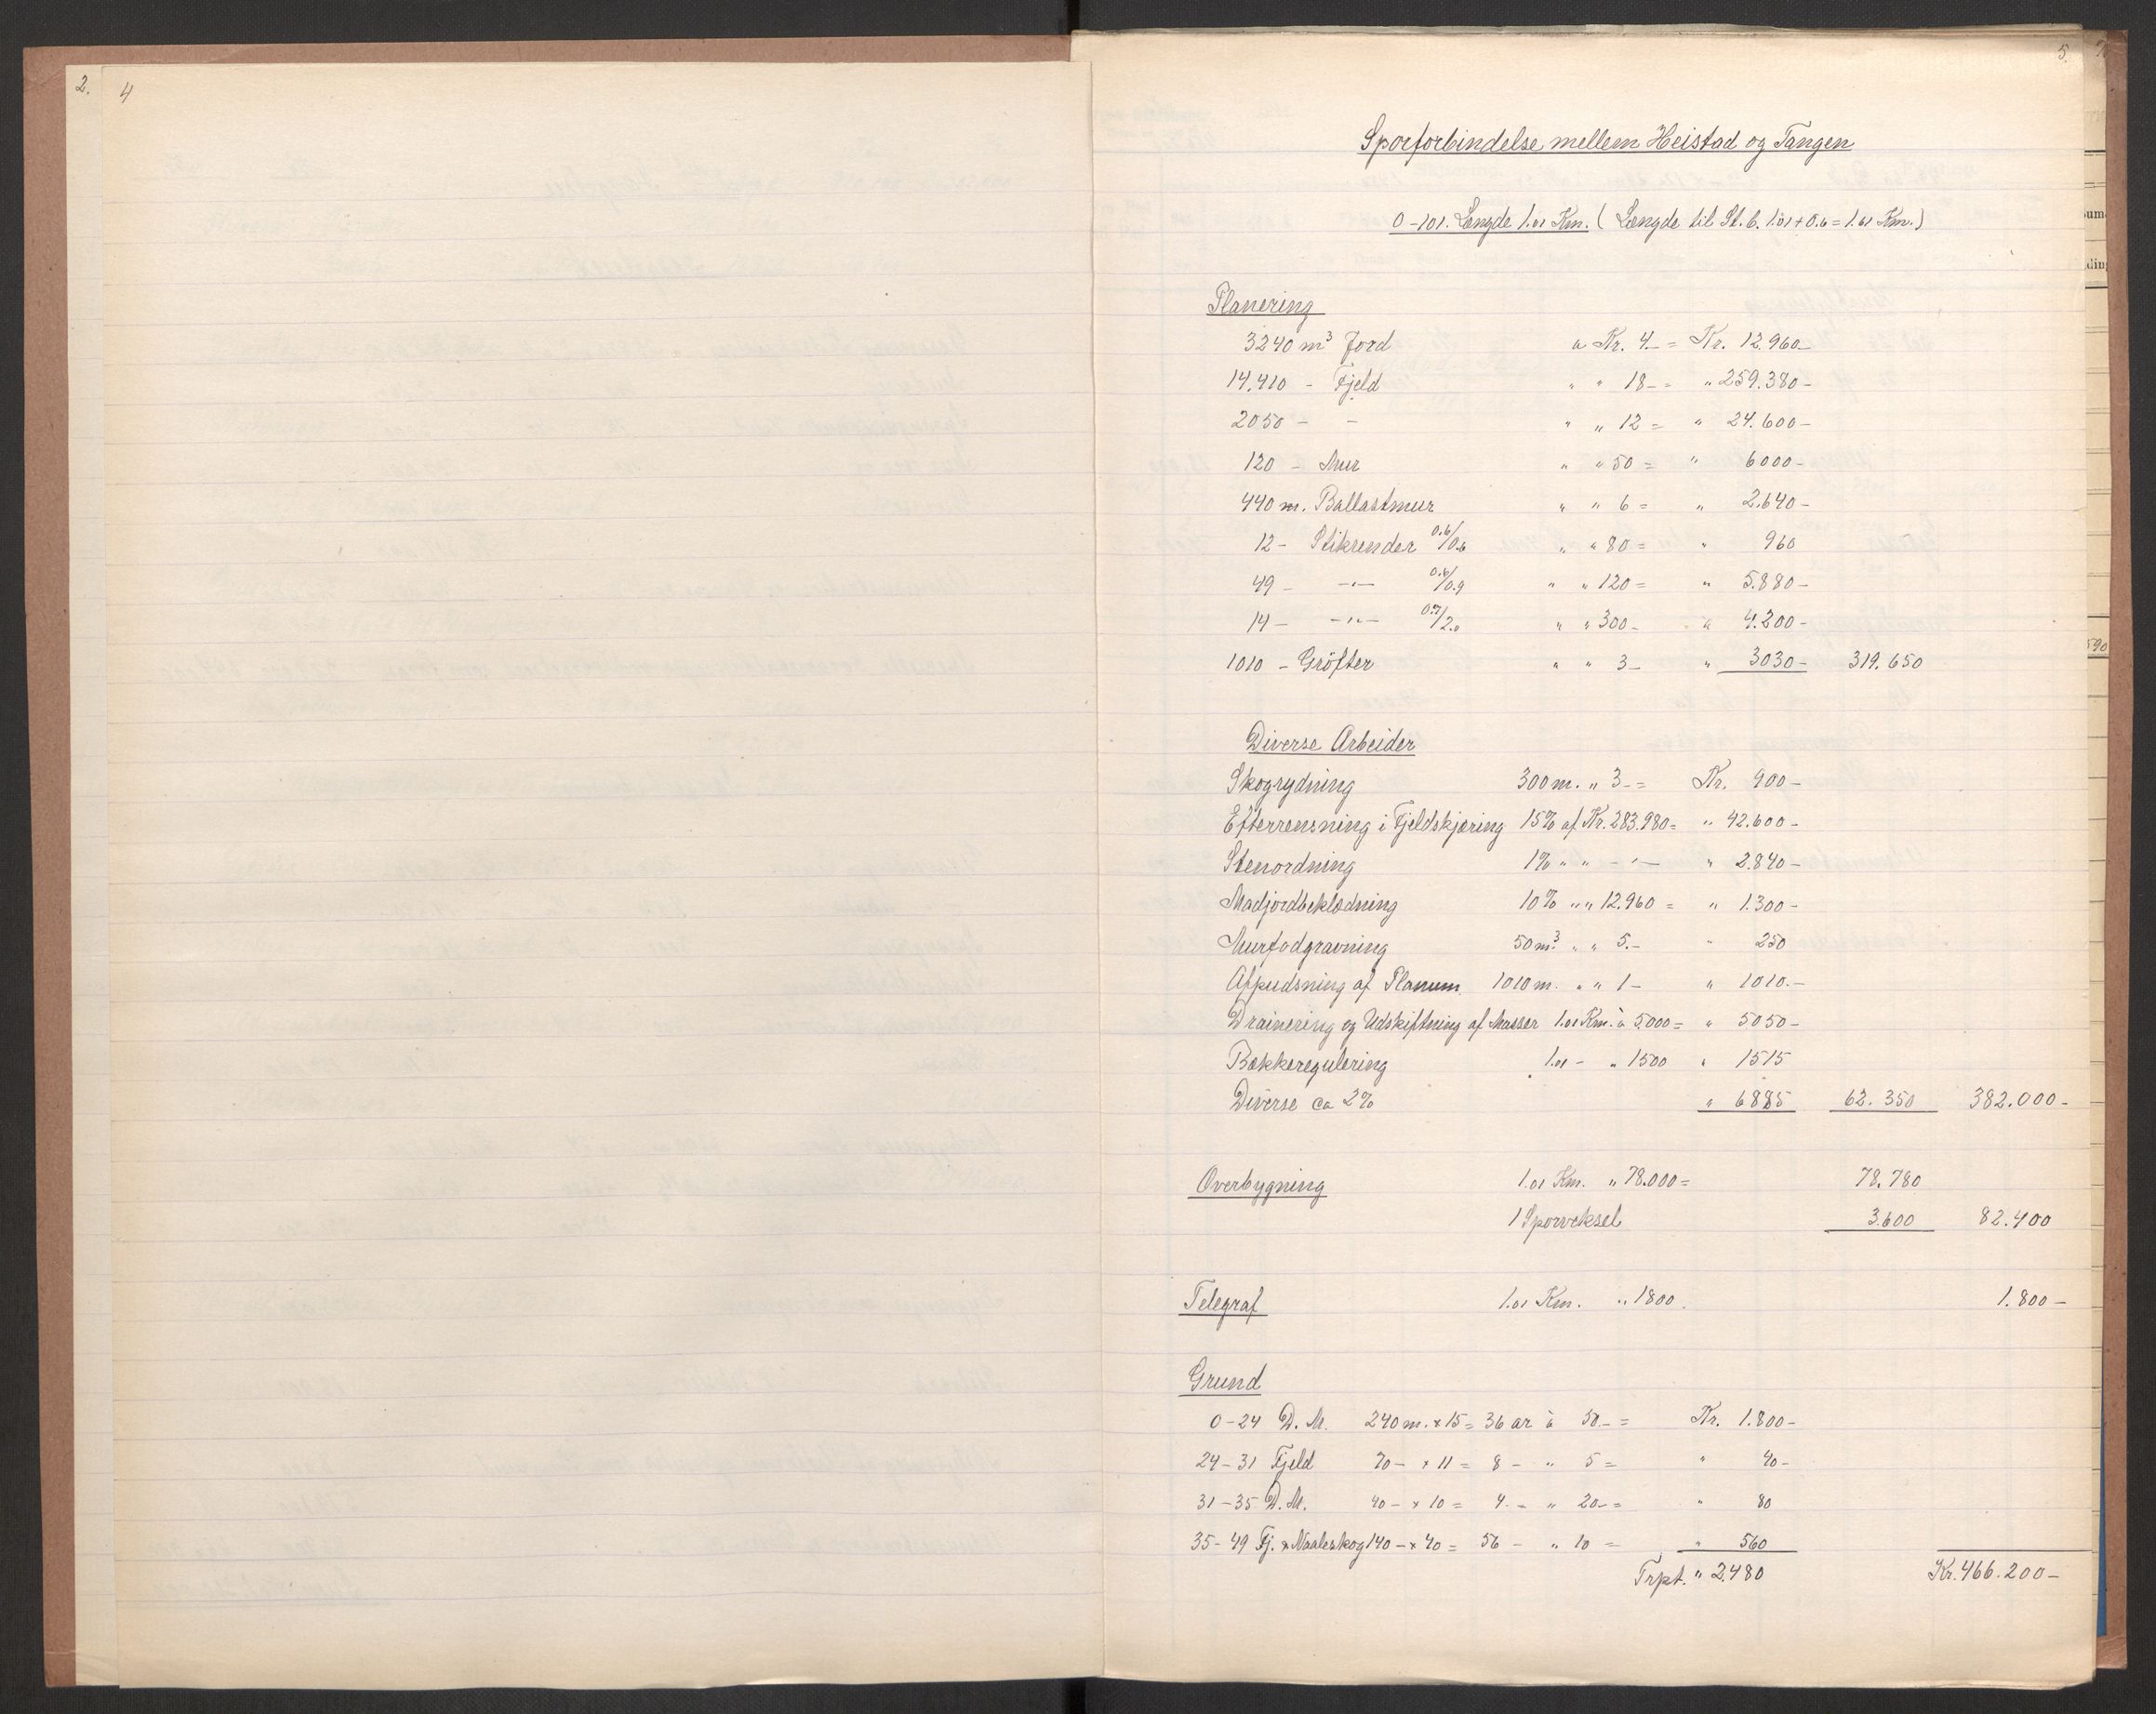 2.
4
5.
Sporforbindelse mellem Heistad og Tangen
0-101. Længde 1.01 Km. (Længde til St. 6. 1.01 + 0.6 = 1.61 Km.)
Planering
3240 m³ Jord a Kr. 4.- = Kr. 12.960-
14.410 - Fjeld " " 18- = " 259.380-
2050 - - " " 12 = " 24.600-
120 - Mur " " 50 = " 6000-
440 m. Ballastmur " " 6 = " 2.640-
12 - Stikrender 0.6/0.6 " " 80 = " 960
49 - -"- 0.6/0.9 " " 120 = " 5.880-
14 - -"- 0.7/2.0 " " 300- " 4.200-
1010 - Gröfter " " 3- " 3030- 319.650
Diverse Arbeider
Skogrydning 300 m. " 3- = Kr. 900-
Efterrensning i Fjeldskjæring 15% af Kr. 283.980 = " 42.600-
Stenordning 1% " " -"- " 2.840-
Madjordbeklædning 10% " " 12.960 = " 1.300-
Murfodgravning 50 m³. " " 5.- " 250
Afpudsning af Planum 1010 m. " " 1- " 1010.-
Drainering og Udskiftning af Masser 1.01 Km. à 5.000 = " 5050-
Bækkeregulering 1.01 - " 1500 " 1515
Diverse ca 2% " 6885 62.350 382.000-
Overbygning 1.01 Km. " 78.000 = 78.780
1 Sporveksel 3.600 82.400
Telegraf 1.01 Km. " 1800. 1.800-
Grund
0-24 D. M. 240 m. x 15 = 36 ar à 50.- = Kr. 1.800-
24-31 Fjeld 70 - x 11 = 8 - " 5 = " 40-
31-35 D. M. 40 - x 10 = 4. - " 20- = " 80
35-49 Fj. & Naaleskog 140 - x 40 = 56 - " 10 = " 560
Trpt. " 2.480 Kr. 466.200-